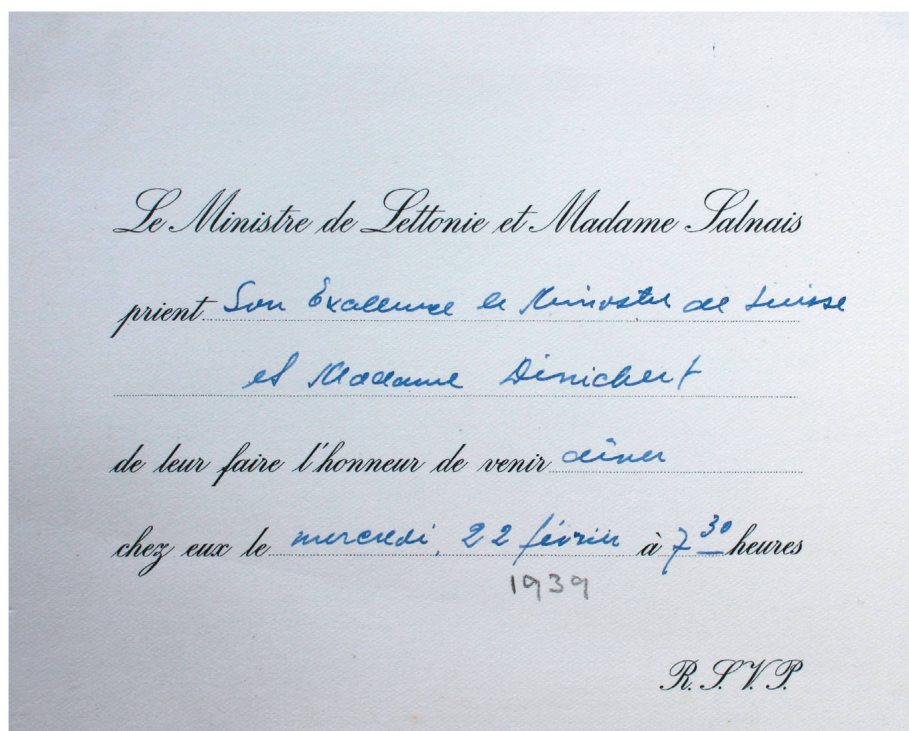 Le Ministre de Lettonie et Madame Salnais
prient Son Excellence le Ministre de Suisse
et Madame Dinichert
de leur faire l'honneur de venir dîner
chez eux le mercredi, 22 février à 7 30 heures
1939
R. S. V. P.